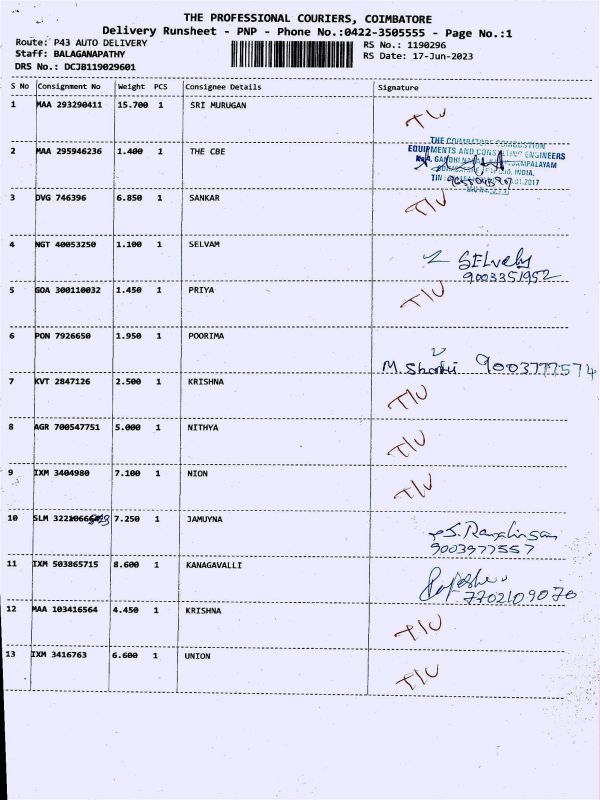 THE PROFESSIONAL COURIERS, COIMBATORE
Delivery Runsheet - PNP - Phone No.:0422-3505555 - Page No.:1
Route: P43 AUTO DELIVERY RS No.: 1190296
Staff: BALAGANAPATHY RS Date: 17-Jun-2023
DRS No.: DCJB119029601
S No Consignment No Weight PCS Consignee Details Signature
1 MAA 293290411 15.700 1 SRI MURUGAN T/U
2 MAA 295946236 1.400 1 THE CBE
THE COIMBATORE COMBUSTION
EQUIPMENTS AND CONSULTING ENGINEERS
3 DVG 746396 6.850 1 SANKAR T/U
4 NGT 40053250 1.100 1 SELVAM
9003351952
5 GOA 300110032 1.450 1 PRIYA T/U
6 PON 7926650 1.950 1 POORIMA
9003777574
7 KVT 2847126 2.500 1 KRISHNA T/U
8 AGR 700547751 5.000 1 NITHYA T/U
9 IXM 3404980 7.100 1 NION T/U
10 SLM 7.250 1 JAMUYNA
9003977557
11 IXM 503865715 8.600 1 KANAGAVALLI
7702109070
12 MAA 103416564 4.450 1 KRISHNA T/U
13 IXM 3416763 6.600 1 UNION T/U